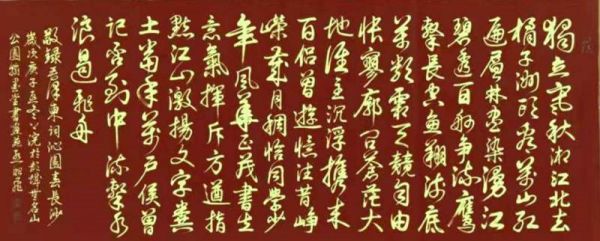 獨立寒秋湘江北去
橘子洲頭看萬山紅
遍層林盡染漫江
碧透百舸争流鷹
擊長空魚翔淺底
萬類霜天競自由
悵寥廓問蒼茫大
地誰主沉浮攜来
百侣曾遊憶往昔崢
嶸歲月稠恰同學少
年風華正茂書生
意氣揮斥方遒指
點江山激揚文字糞
土當年萬户侯曾
記否到中流擊水
浪遏飛舟
敬録毛澤東詞沁園春長沙
歲次庚子
公園